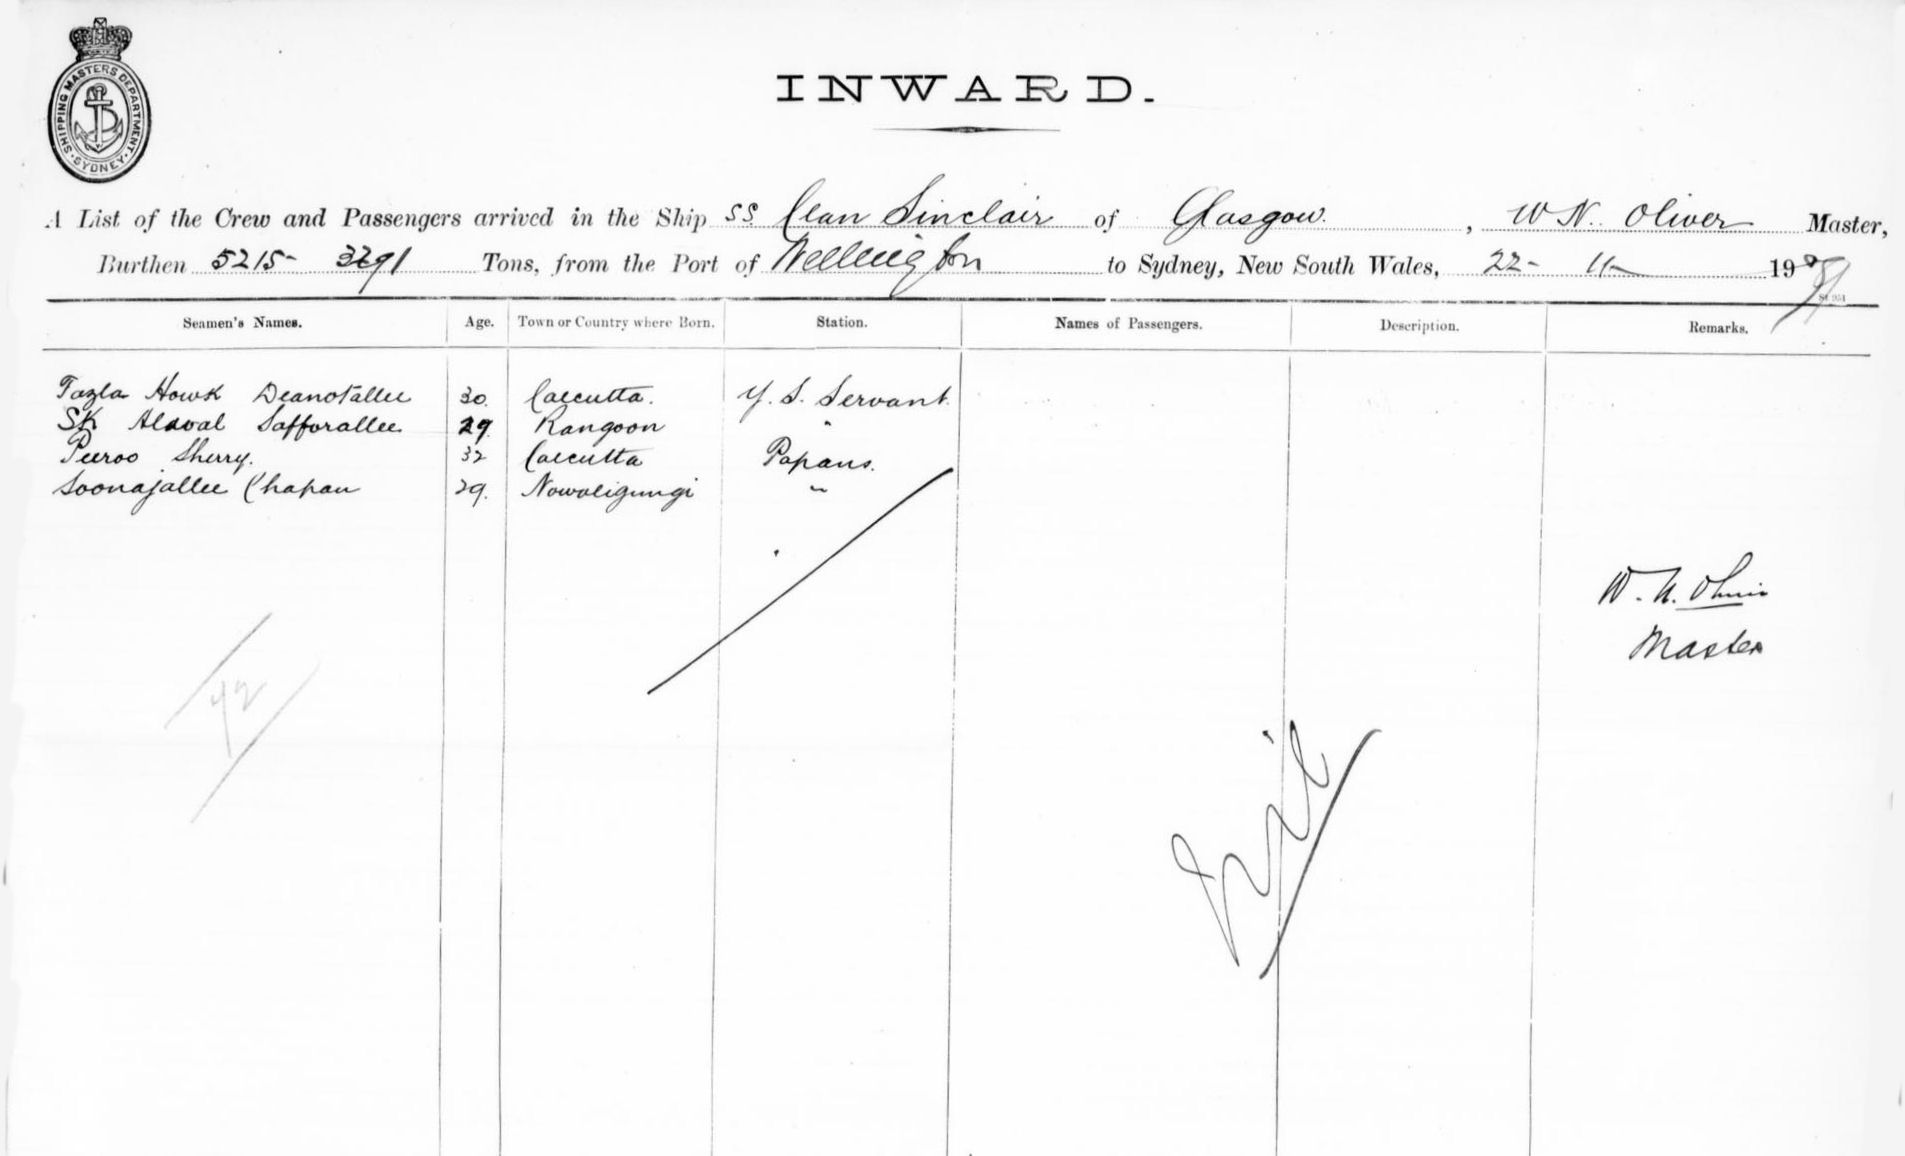 SHIPPING MASTERS DEPARTMENT
SYDNEY
INWARD.
A List of the Crew and Passengers arrived in the Ship SS Clan Sinclair of Glasgow, W N. Oliver Master,
Burthen 5215 - 3291 Tons, from the Port of Wellington to Sydney, New South Wales, 22 - 11 - 19
Seamen's Names. Age. Town or Country where Born. Station. Names of Passengers. Description. Remarks.
Fazla Howk Deanotallee 30. Calcutta. Servant.
SK Alaval Safforallee 29 Rangoon "
Peeroo Sherry. 32 Calcutta
Soonajallee Chapan 29. "
W. N. Oliver
Master
42
Nil